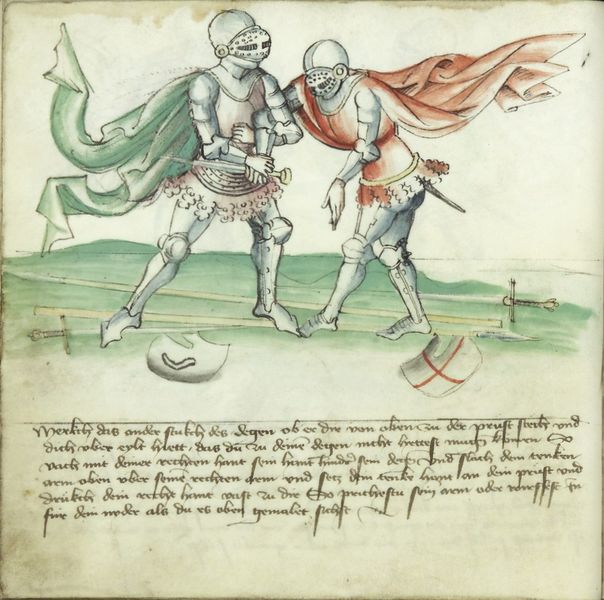 Merckh das ander stuckh des degen ob er dir von oben zu der prust stech und
dich uber eylt hiett das du zu deine degen nicht hettest mugen komen So
vach mit deiner rechten hant sein hant hinder sein degen und slach dein tencken
arem oben uber seine rechten arem und setz dein tencke hant an dein prust und
druckh dein rechte hant vast zu dir So prichestu sein arem oder
fur dein nyder als du es oben gemalet sichst